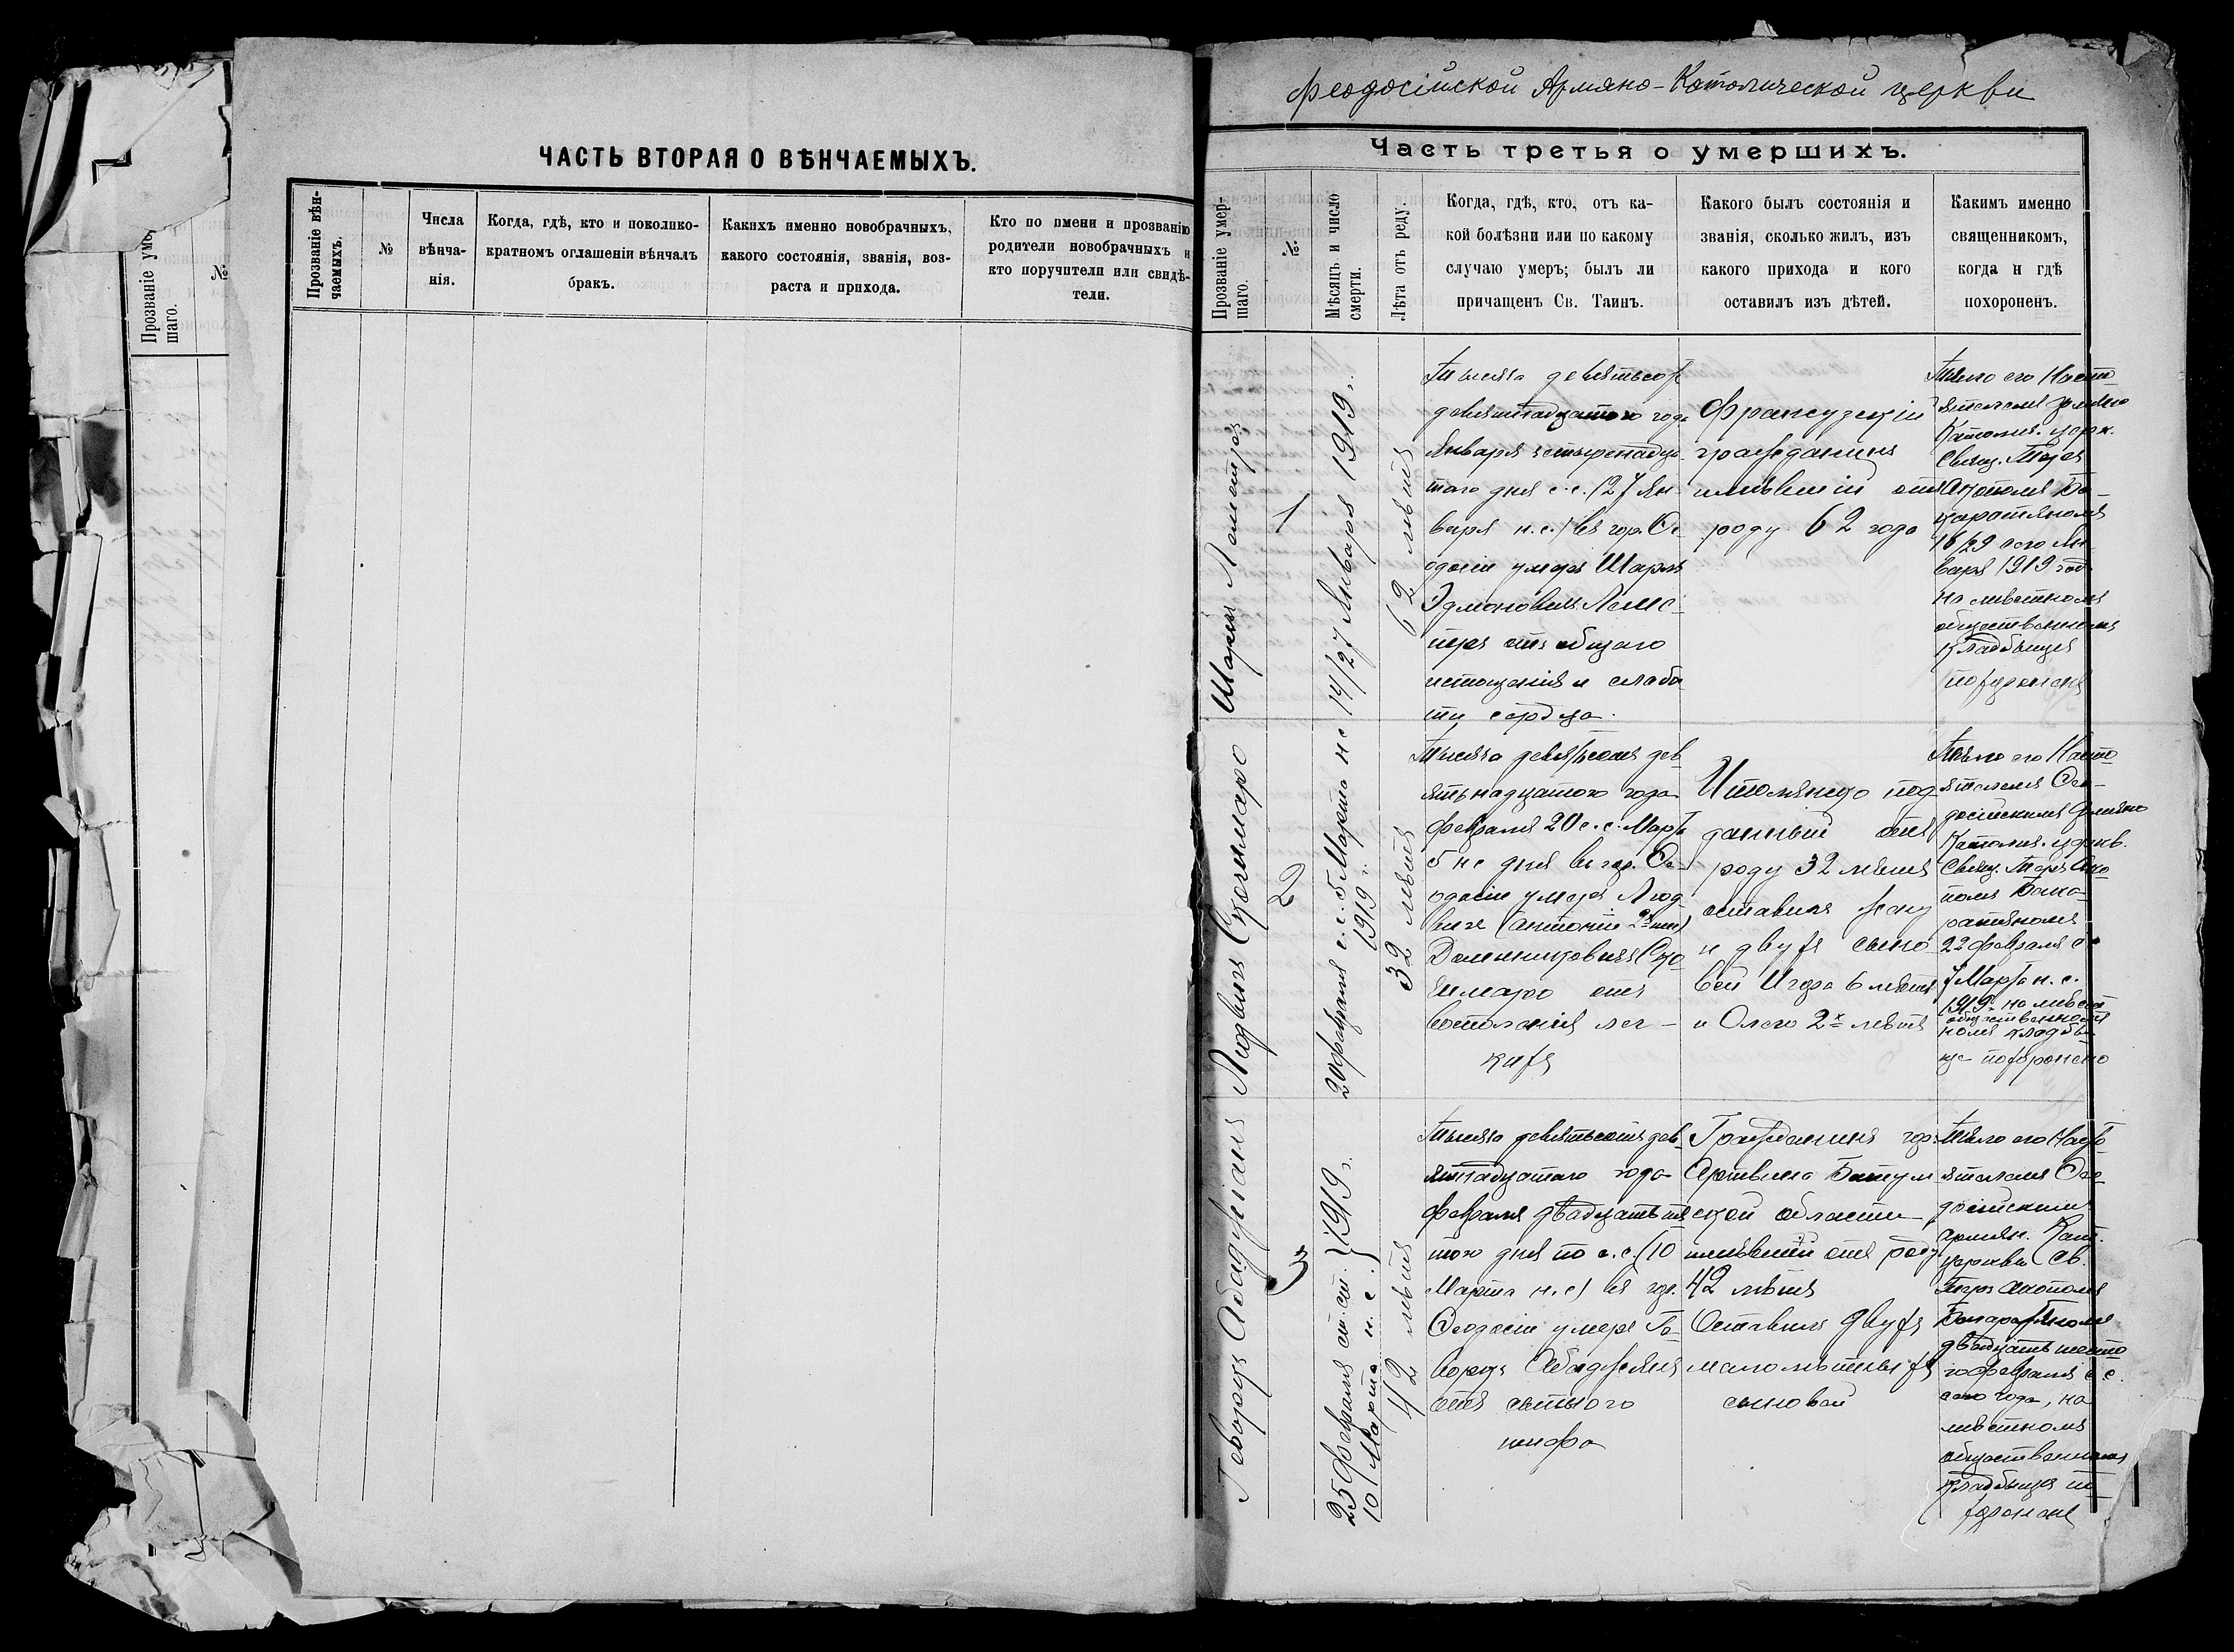 Прозваніе уме
шаго.
№
ЧАСТЬ ВТОРАЯ О ВѢНЧАЕМЫХЪ.
Прозваніе вѣн-
чаемыхъ.
№
Числа
вѣнча-
нія.
Когда, гдѣ, кто и поколико-
кратномъ оглашеніи вѣнчалъ
бракъ.
Какихъ именно новобрачныхъ,
какого состоянія, званія, воз-
раста и прихода.
Кто по имени и прозванію
родители новобрачныхъ и
кто поручители или свидѣ-
тели.
Феодосійской Армяно-Католической церкви
Часть третья о умершихъ.
Прозваніе умер-
шаго.
№
Мѣсяцъ и число
смерти.
Лѣта отъ роду.
Когда, гдѣ, кто, отъ ка-
кой болѣзни или по какому
случаю умеръ; былъ ли
причащенъ Св. Таинъ.
Какого былъ состоянія и
званія, сколько жилъ, изъ
какого прихода и кого
оставилъ изъ дѣтей.
Какимъ именно
священникомъ,
когда и гдѣ
похороненъ.
Шарль Лометръ
1
14/27 Января 1919 г.
62 лѣтъ
Тысяча девятьсот
девятнадцатого года
Января четырнадца-
того дня с.с. (27 Ян-
варя н.с.) въ гор. Ѳе-
одосіи умеръ Шарль
Эдмоновичъ Леме-
тръ отъ общаго
истощенія и слабо
сти сердца.
Французскій
гражданинъ
имѣвшій отъ
роду 62 года
Тѣло его Насто-
ятелемъ Армяно
Католич. церк.
Свящ. Теръ
Акопомъ Ба-
гаратяномъ
16/29 сего Ян-
варя 1919 год
на мѣстномъ
общественномъ
кладбищѣ
похоронен
Людвигъ Скогимаро
2
20 февраля с.с. 5 Марта нс
1919 г.
32 лѣтъ
Тысяча девятьсотъ дев
ятьнадцатого года
февраля 20 с.с. Марта
5 нс дня въ гор. Ѳе-
одосіи умеръ Люд-
вигъ (Антоній
Доминиковичъ Ско-
гимаро отъ
воспаленія лег-
кихъ
Итальянско под-
данный отъ
роду 32 лѣтъ
оставилъ жену
и двухъ сыно
вей Игоря 6 лѣтъ
и Олега 2х лѣтъ
Тѣло его Насто-
ятелемъ Ѳео-
досійскимъ Армяно
Католич. церкв.
Свящ. Теръ Ако-
помъ Бага-
ратяномъ
22 февраля с
7 Марта н.с.
1919 г. на мѣст
общественномъ
номъ кладби-
щѣ похоронено
Геворгъ Абаджіанъ
3
25 Февраля ст. ст. } 1919 г.
10 Марта н. с. }
42 лѣтъ
Тысяча девятьсотъ дев
ятнадцатаго года
февраля двадцать пя
того дня по с.с. (10
Марта н.с) въ гор.
Ѳеодосіи умеръ Ге-
воргъ Абаджянъ
отъ сыпного
тифа
Гражданинъ гор.
Артвина Батум-
ской области
имѣвшій отъ роду
42 лѣтъ
Оставилъ двухъ
малолѣтныхъ
сыновей
Тѣло его Насто
ятелемъ Ѳео-
досійским
армян. Кат.
церкви Св.
Теръ Акопомъ
Багаратяномъ
двадцать шесто
го февраля с.с.
сего года, на
мѣстномъ
общественномъ
кладбищѣ по
хороненъ